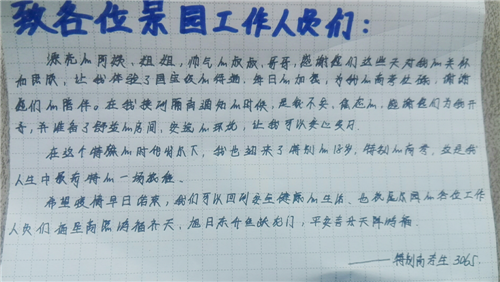 致各位景园工作人员们：
漂亮的阿姨、姐姐，帅气的叔叔、哥哥，感谢我们这些天对我的关怀
和照顾，让我体验了国宝级的待遇，每日的加餐，为我的高考处处，谢谢
我们的陪伴。在我接到隔离通知的时候，是很不安、焦虑的，感谢我们为我开
奇，并准备了舒适的房间，安静的环境，让我可以安心复习。
在这个特殊的时代背景下，我也迎来了特别的18岁，特别的高考，这是我
人生中最奇特的一场旅程。
希望疫情早日结束，我们可以回到安全健康的生活。也祝在景园的各位工作
人员们 福至南溟 鸿福齐天，旭日东升 鱼跃龙门，平安喜乐 天降鸿福。
——特别高考生 3065.